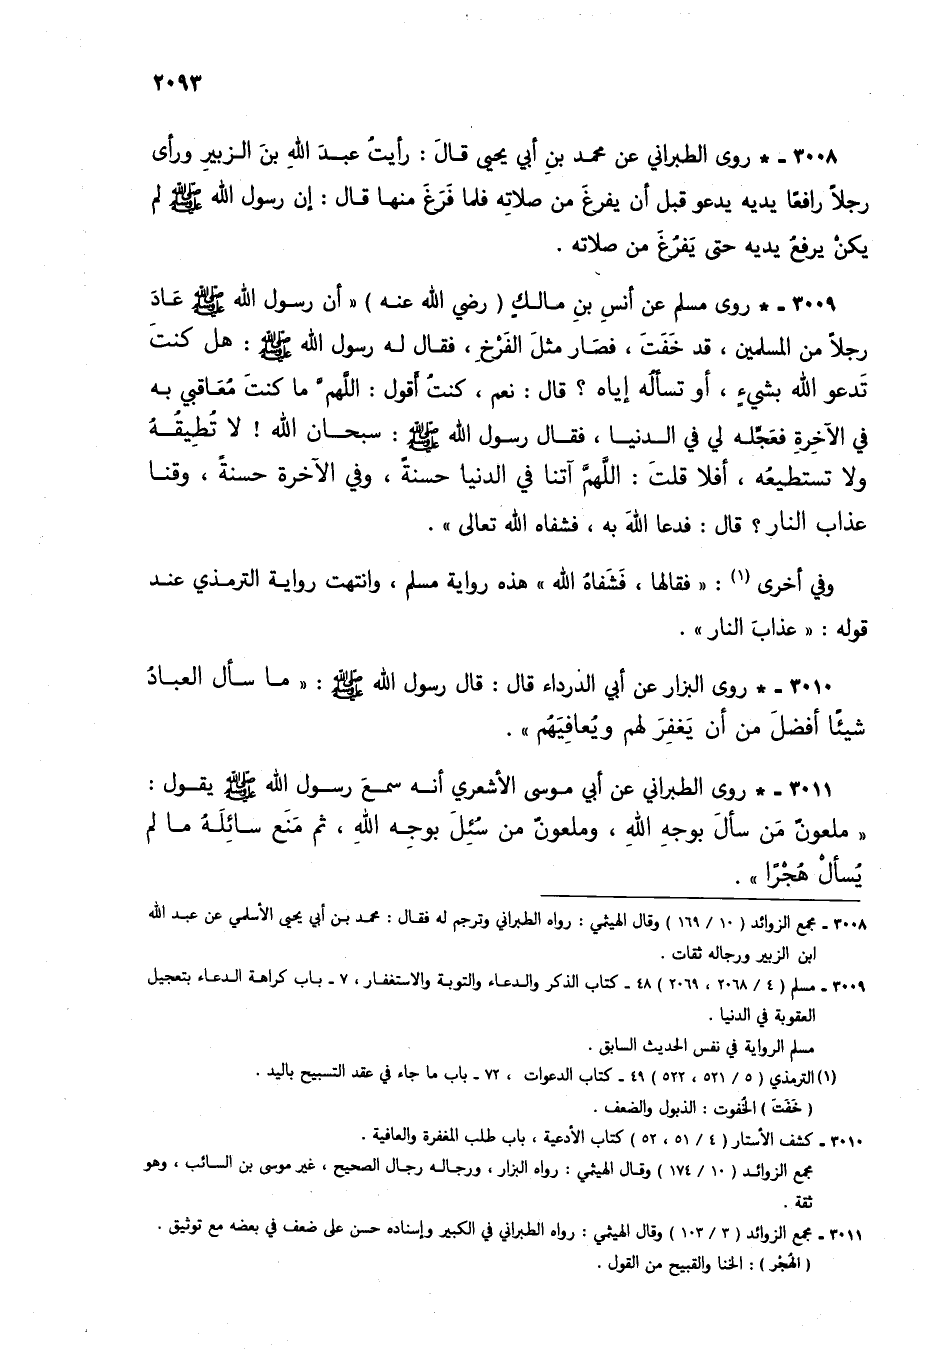 ٢٠٩٣
٣٠٠٨ - * روى الطبراني عن محمد بنِ أبي يحيى قـالَ : رأيتُ عبـدَ اللهِ بنَ الـزبيرِ ورأى
رجلاً رافعًا يديه يدعو قبل أن يفرغَ من صلاتِه فلما فَرَغَ منهـا قال : إن رسول الله ﷺ لم
يكنْ يرفعُ يديه حتى يَفرُغَ من صلاته .
٣٠٠٩ - * روى مسلم عن أنسِ بنِ مـالـكٍ ( رضي الله عنـه ) « أن رسـول الله ﷺ عَـادَ
رجلاً من المسلمين ، قد خَفَتَ ، فصَار مثلَ الفَرْخِ ، فقـال لـه رسول الله ﷺ : هل كنتَ
تَدعو الله بشيءٍ ، أو تسألُه إياه ؟ قال : نعم ، كنتُ أقول : اللَّهم َّ ما كنتَ مُعَاقبي بـه
في الآخِرةِ فعَجِّلـه لي في الـدنيـا ، فقـال رسول الله ﷺ : سبحـان الله ! لا تُطِيقُـهُ
ولا تستطيعُه ، أفلا قلتَ : اللَّهمَّ آتنا في الدنيا حسنةً ، وفي الآخرة حسنةً ، وقنـا
عذاب النار ؟ قال : فدعا اللهَ به ، فشفاه الله تعالى » .
وفي أخرى (١) : « فقالها ، فَشَفاهُ الله » هذه رواية مسلم ، وانتهت روايـة الترمـذي عنـد
قوله : « عذابَ النار » .
٣٠١٠ - * روى البزار عن أبي الدرداء قال : قال رسول الله ﷺ : « مـا سـأل العبـادُ
شيئًا أفضلَ من أن يَغفِرَ لهم ويُعافِيَهُم » .
٣٠١١ - * روى الطبراني عن أبي مـوسى الأشعري أنـه سمـعَ رسـول الله ﷺ يقول :
« ملعونٌ مَن سألَ بوجهِ اللهِ ، وملعونٌ من سُئِلَ بوجـهِ اللهِ ، ثم مَنَع سـائِلَـهُ مـا لم
يُسألْ هُجْرًا » .
٣٠٠٨ - مجمع الزوائد ( ١٠ / ١٦٩ ) وقال الهيثمي : رواه الطبراني وترجم له فقـال : محمـد بـن أبي يحيى الأسلمي عن عبـد الله
ابن الزبير ورجاله ثقات .
٣٠٠٩ - مسلم ( ٤ / ٢٠٦٨ ، ٢٠٦٩ ) ٤٨ - كتاب الذكر والـدعـاء والتوبـة والاستغفـار ، ٧ - بـاب كراهـة الـدعـاء بتعجيل
العقوبة في الدنيا .
مسلم الرواية في نفس الحديث السابق .
(١) الترمذي ( ٥ / ٥٢١ ، ٥٢٢ ) ٤٩ - كتاب الدعوات ، ٧٢ - باب ما جاء في عقد التسبيح باليد .
( خَفَتَ ) الخُفوت : الذبول والضعف .
٣٠١٠ - كشف الأستار ( ٤ / ٥١ ، ٥٢ ) كتاب الأدعية ، باب طلب المغفرة والعافية .
مجمع الزوائـد ( ١٠ / ١٧٤ ) وقال الهيثمي : رواه البزار ، ورجـالـه رجـال الصحيح ، غير موسى بن السـائب ، وهو
ثقة .
٣٠١١ - مجمع الزوائد ( ٣ / ١٠٣ ) وقال الهيثمي : رواه الطبراني في الكبير وإسناده حسن على ضعف في بعضه مع توثيق .
( الهُجْر ) : الخنا والقبيح من القول .